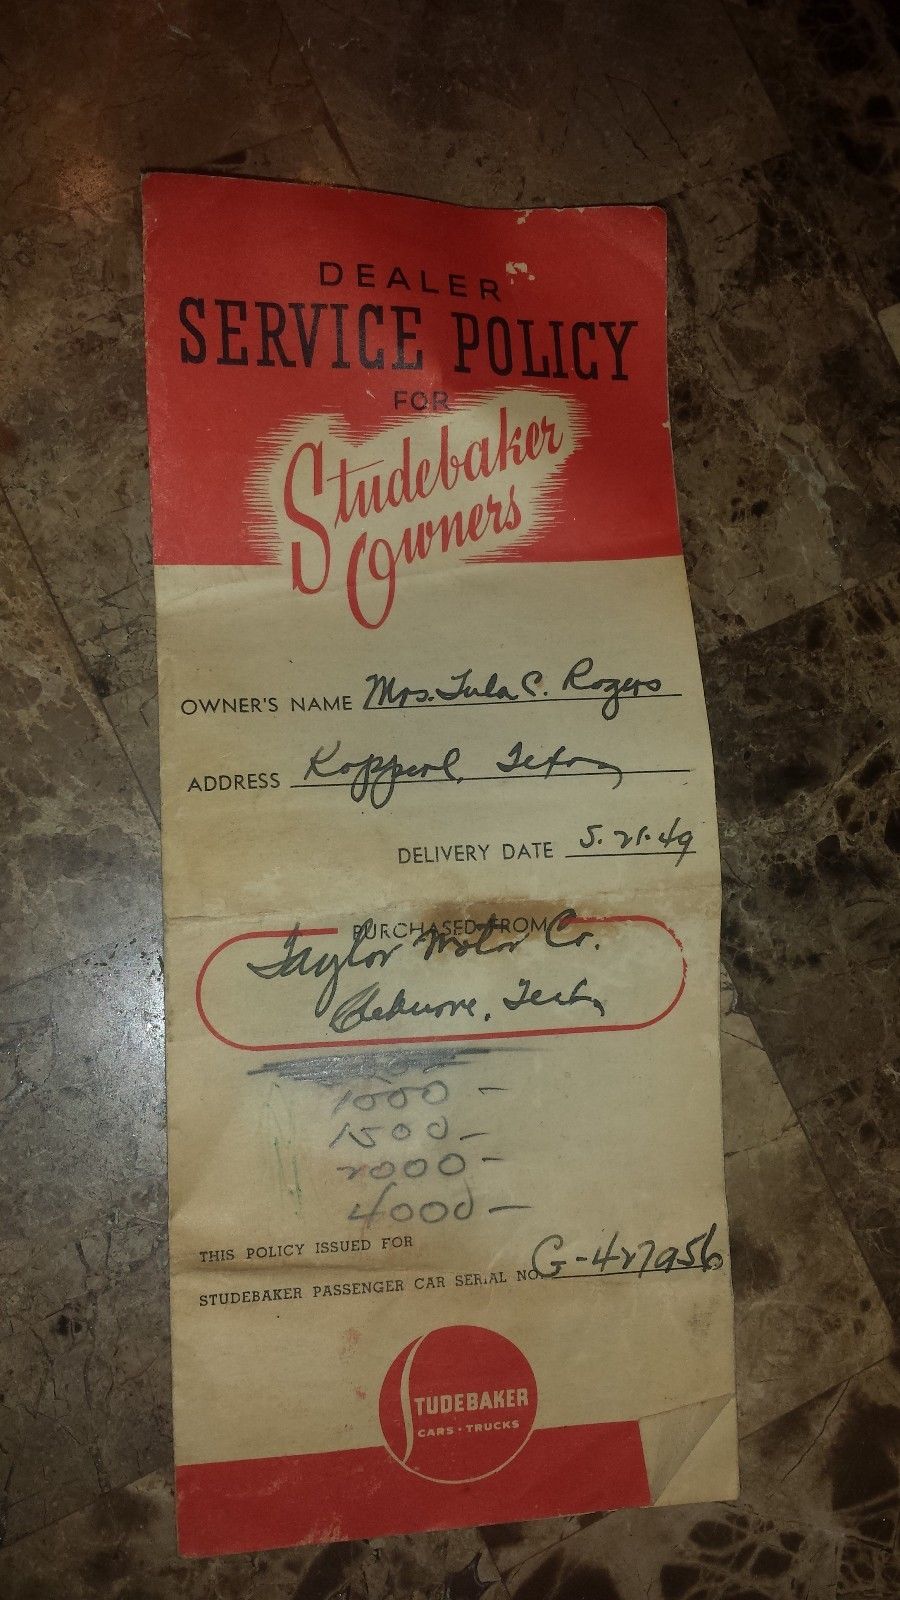 DEALER
SERVICE POLICY
FOR
Studebaker
Owners
OWNER'S NAME Mrs. Tula C. Rogers
ADDRESS Kopperl, Texas
DELIVERY DATE 5-21-49
PURCHASED FROM
Taylor Motor Co.
Cleburne, Texas
1000 -
1500 -
2000 -
4000 -
THIS POLICY ISSUED FOR
STUDEBAKER PASSENGER CAR SERIAL NO. G-427956
STUDEBAKER
CARS · TRUCKS